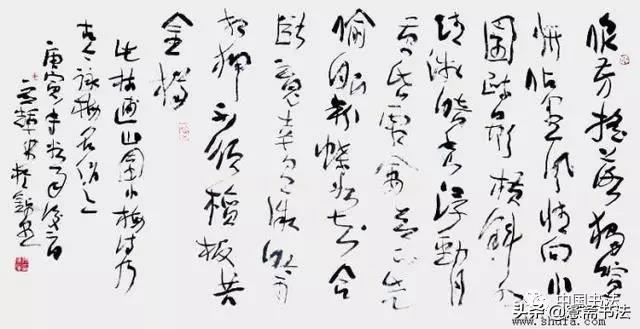 众芳摇落独暄
妍占尽风情向小
园疏影横斜水
清浅暗香浮动月
黄昏霜禽欲下先
偷眼粉蝶如知合
断魂幸有微吟可
相狎不须檀板共
金樽
此林逋山园小梅诗乃
咏梅名
庚寅年
中国书法
头条 斋书法
www.shufa.com